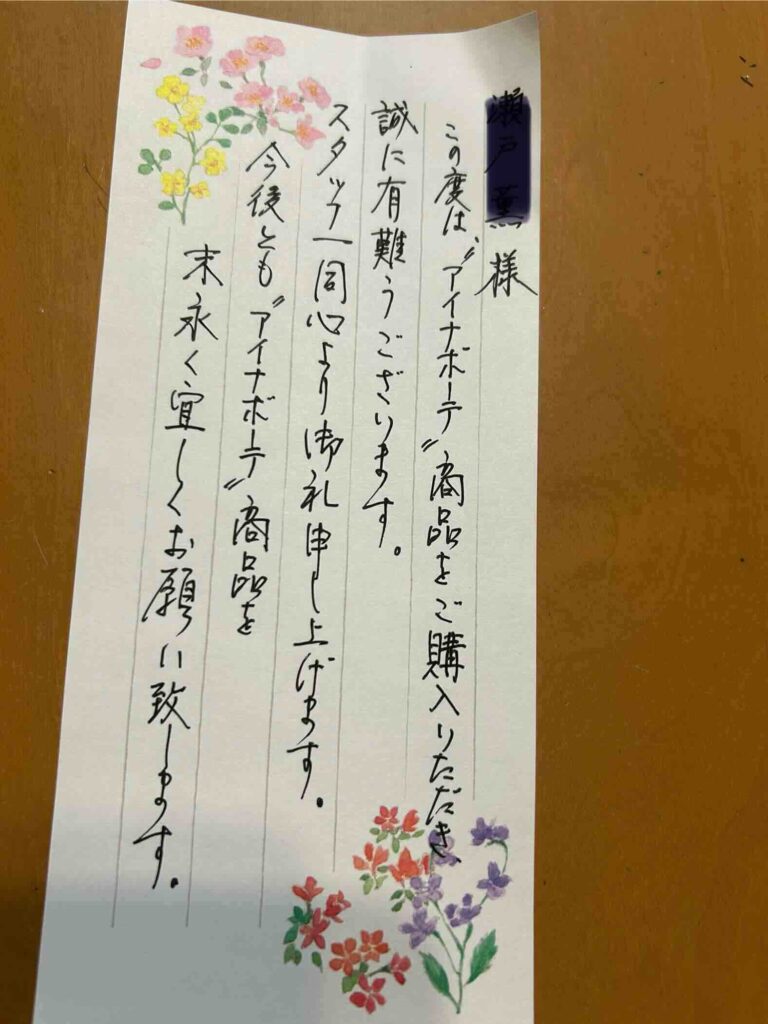 様
この度は、〝アイナボーテ〟商品をご購入いただき、
誠に有難うございます。
スタッフ一同心より御礼申し上げます。
今後とも〝アイナボーテ〟商品を
末永く宜しくお願い致します。